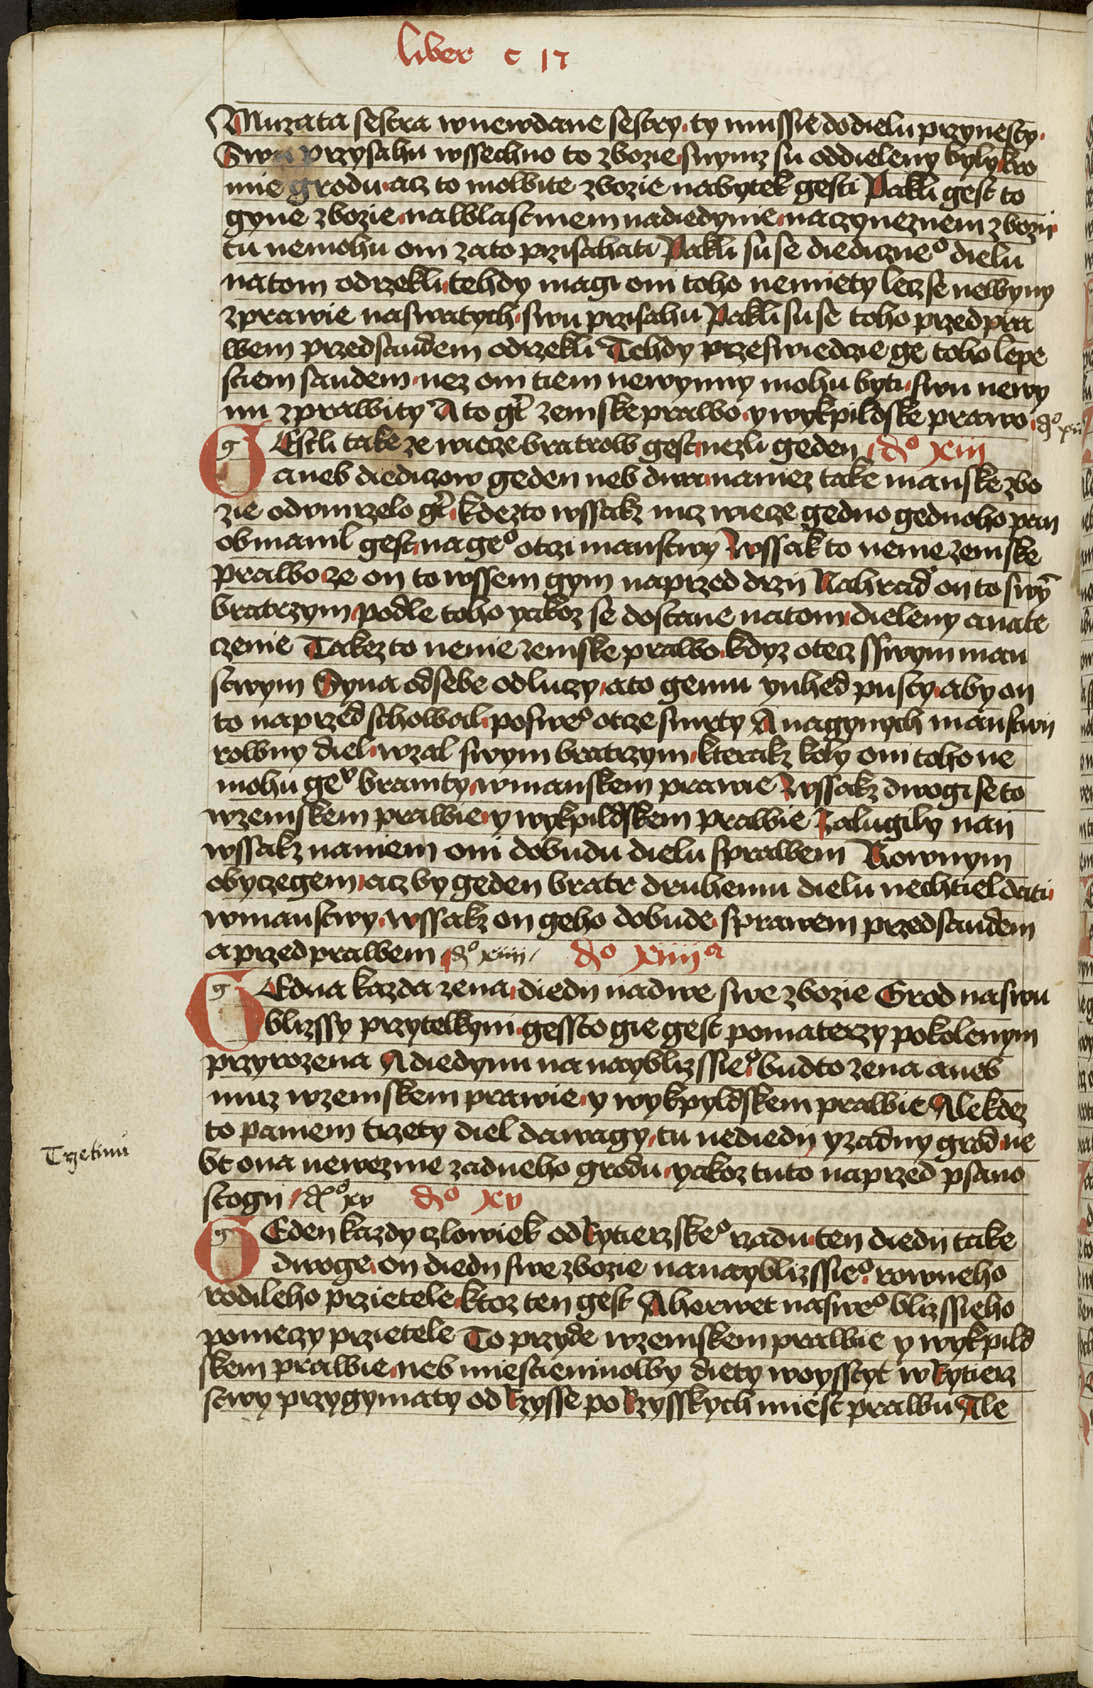 liber c 17
Muzata sestra wnewdane sestry ty mussie dodielu przynesty
Swu przysahu wssechno to zbozie snymz su oddieleny byly kro
mie grodu acz to molwite zbozie nabytek gesti Pakli gest to
gyne zbozie nalblastniem nadiedynie naczyneznem zbozii
tu nemohu oni zato przisahati Pakli su se diediczneº dielu
natom odrzekli tehdy magi oni toho nemiety lecz se newyny
zprawie naswatych swu przisahu Pakli su se toho przed pra
wem przed saudem odrzekli Tehdy przeswiedczie ge toho lepe
stiem saudem nez oni tiem newynny mohu byti swu newy
nu zprawity A to gt zemske prawo y wykpildske prawo
Estli take ze wiecze bratrow gest nezli geden dº xiii
aneb diediczow geden neb dwa namez take manske zbo
zie odumrzelo gt kdezto wssak nicz wiecze gedno gednoho pan
obmanil gest nageº otczi manstwy Wssak to nenie zemske
prawo ze on to wssem gym naprzed drzii Nahrad on to swy
bratrzym podle toho yakoz se dostane natom dieleny anale
zenie Takez to nenie zemske prawo kdyz otecz sswym man
stwym Syna odsebe odluczy ato gemu yuhed pusty aby on
to naprzed schowal posweº otcze smrty A nagynych manstwii
rowny diel wzal swym bratrzym kterakz koly oni toho ne
mohu geº braniti wmanskem prawie Wssakz dwogi se to
wzemskem prawie y wykpildskem prawie Zalugily nan
wssakz namem oni dobudu dielu sprawem Rownym
obyczegem acz by geden bratr druhemu dielu nechtiel dati
wmanstwy wssakz on geho dobude sprawem przed saudem
a przed prawem dº xiiii dº xiiiiª
Edna kazda zena diedii nadwe swe zbozie Grod naswu
blizssy przytelkyni gessto gie gest pomaterzy pokolenym
przyrozena A diedynu na nayblizssieº budto zena aneb
muz wzemskem prawie y wykpyldskem prawie Alekdez
to paniem trzety diel dawagy tu nediedii y zadny grod ne
bt ona newezme zadneho grodu yakoz tuto naprzed psano
Trzetinu
stogii dº xv dº xv
Eden kazdy czlowiek od Rytierzskeº rzadu ten diedii take
dwoge on diedii swe zbozie nanayblizssieº rowneho
rodileho przietele ktoz ten gest A herwet nasweº blizssieho
pomeczy przietele To przyde wzemskem prawie y wykpild
skem prawie neb miestieninowy diety woysstyt w Rytierz
stwy przygymaty od Rzysse po Rzysskych miest prawu Ale